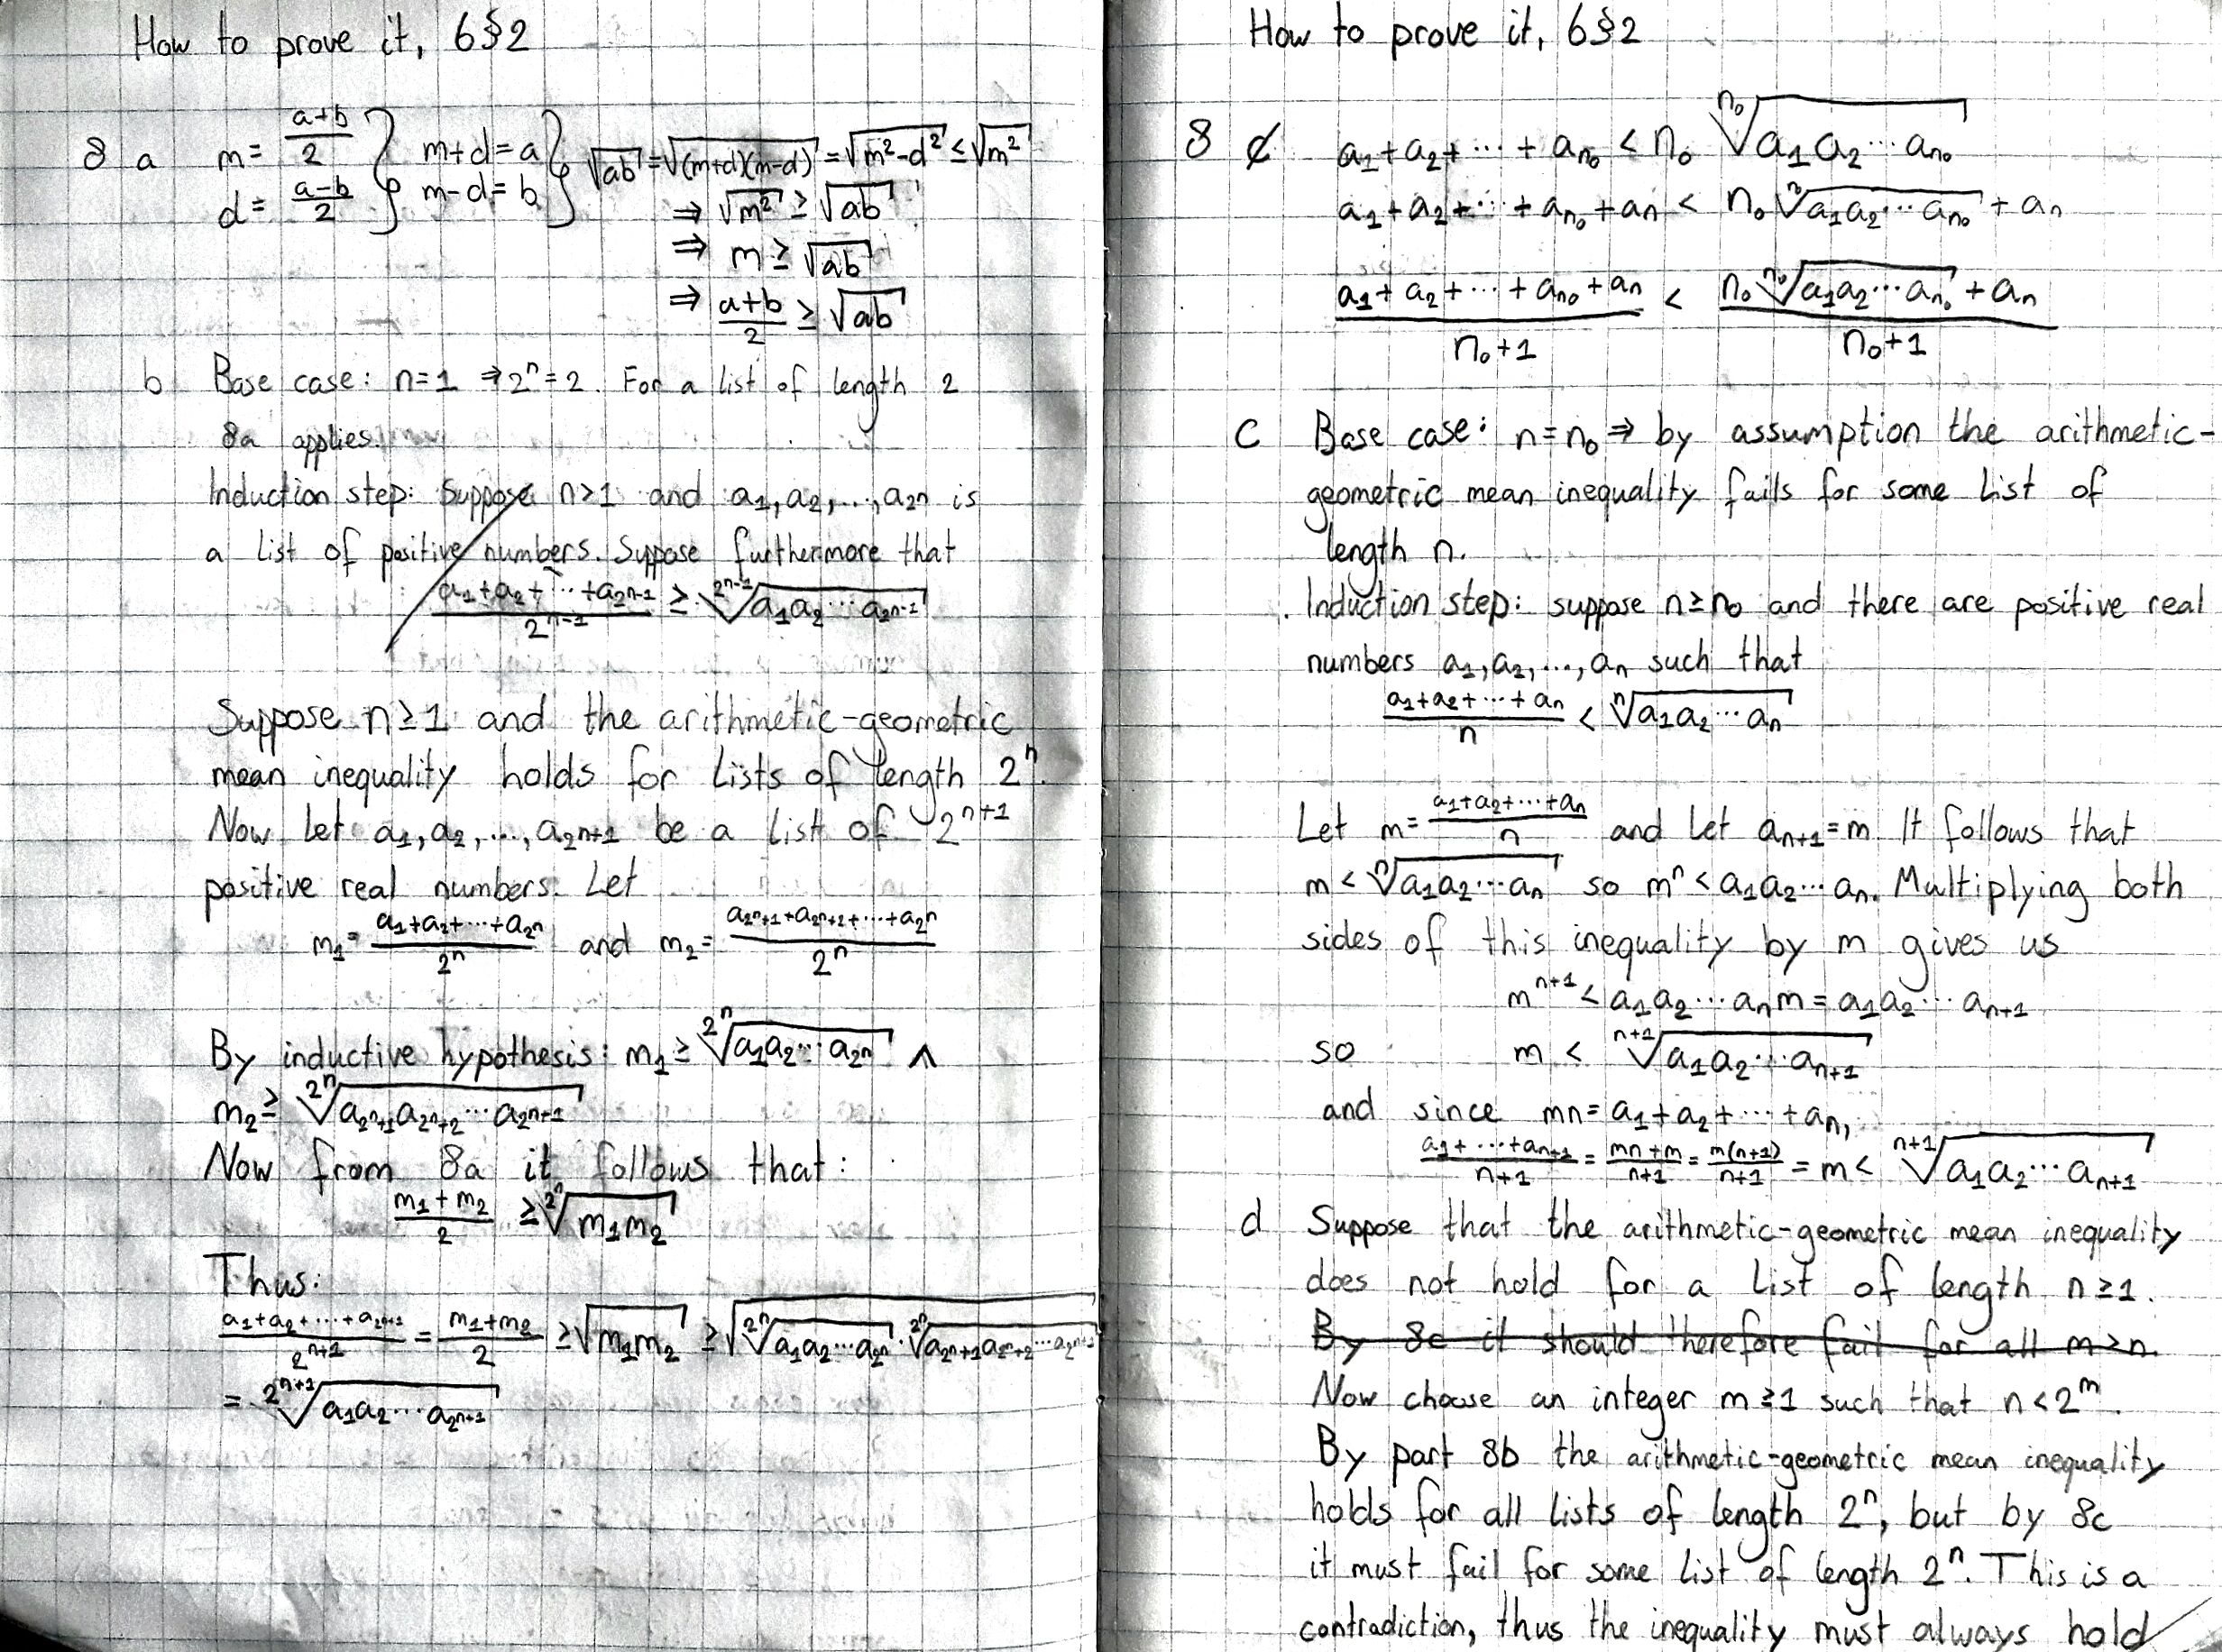 How to prove it, 6§2
8 a m = (a+b)/2 } m+d = a } √ab = √((m+d)(m-d)) = √(m²-d²) ≤ √m²
d = (a-b)/2 } m-d = b }
⇒ √m² ≥ √ab
⇒ m ≥ √ab
⇒ (a+b)/2 ≥ √ab
b Base case: n=1 ⇒ 2ⁿ = 2. For a list of length 2
8a applies.
Induction step: Suppose n>1 and a₁, a₂, ..., a₂ₙ is
a list of positive numbers. Suppose furthermore that
(a₁+a₂+⋯+a_{2^{n-1}})/2^{n-1} ≥ ^{2^{n-1}}√(a₁a₂⋯a_{2^{n-1}})
Suppose n≥1 and the arithmetic-geometric
mean inequality holds for lists of length 2ⁿ.
Now let a₁, a₂, ..., a_{2^{n+1}} be a list of 2^{n+1}
positive real numbers. Let
m₁ = (a₁+a₂+⋯+a_{2^n})/2ⁿ and m₂ = (a_{2^n+1}+a_{2^n+2}+⋯+a_{2^n})/2ⁿ
By inductive hypothesis: m₁ ≥ ^{2^n}√(a₁a₂⋯a_{2^n}) ∧
m₂ ≥ ^{2^n}√(a_{2^n+1}a_{2^n+2}⋯a_{2^{n+1}})
Now from 8a it follows that:
(m₁+m₂)/2 ≥ ^{2^n}√(m₁m₂)
Thus:
(a₁+a₂+⋯+a_{2^{n+1}})/2^{n+1} = (m₁+m₂)/2 ≥ √(m₁m₂) ≥ √(^{2^n}√(a₁a₂⋯a_{2^n}) · ^{2^n}√(a_{2^n+1}a_{2^n+2}⋯a_{2^{n+1}}))
= ^{2^{n+1}}√(a₁a₂⋯a_{2^{n+1}})
How to prove it, 6§2
8 c a₁+a₂+⋯+a_{n₀} < n₀ ^{n₀}√(a₁a₂⋯a_{n₀})
a₁+a₂+⋯+a_{n₀}+aₙ < n₀ ^{n₀}√(a₁a₂⋯a_{n₀}) + aₙ
(a₁+a₂+⋯+a_{n₀}+aₙ)/(n₀+1) < (n₀ ^{n₀}√(a₁a₂⋯a_{n₀}) + aₙ)/(n₀+1)
c Base case: n=n₀ ⇒ by assumption the arithmetic-
geometric mean inequality fails for some list of
length n.
Induction step: suppose n≥n₀ and there are positive real
numbers a₁, a₂, ..., aₙ such that
(a₁+a₂+⋯+aₙ)/n < ⁿ√(a₁a₂⋯aₙ)
Let m = (a₁+a₂+⋯+aₙ)/n and let aₙ₊₁ = m. It follows that
m < ⁿ√(a₁a₂⋯aₙ) so mⁿ < a₁a₂⋯aₙ. Multiplying both
sides of this inequality by m gives us
mⁿ⁺¹ < a₁a₂⋯aₙm = a₁a₂⋯aₙ₊₁
so m < ⁿ⁺¹√(a₁a₂⋯aₙ₊₁)
and since mn = a₁+a₂+⋯+aₙ,
(a₁+⋯+aₙ₊₁)/(n+1) = (mn+m)/(n+1) = m(n+1)/(n+1) = m < ⁿ⁺¹√(a₁a₂⋯aₙ₊₁)
d Suppose that the arithmetic-geometric mean inequality
does not hold for a list of length n≥1.
By 8c it should therefore fail for all m>n.
Now choose an integer m≥1 such that n<2ᵐ.
By part 8b the arithmetic-geometric mean inequality
holds for all lists of length 2ⁿ, but by 8c
it must fail for some list of length 2ⁿ. This is a
contradiction, thus the inequality must always hold